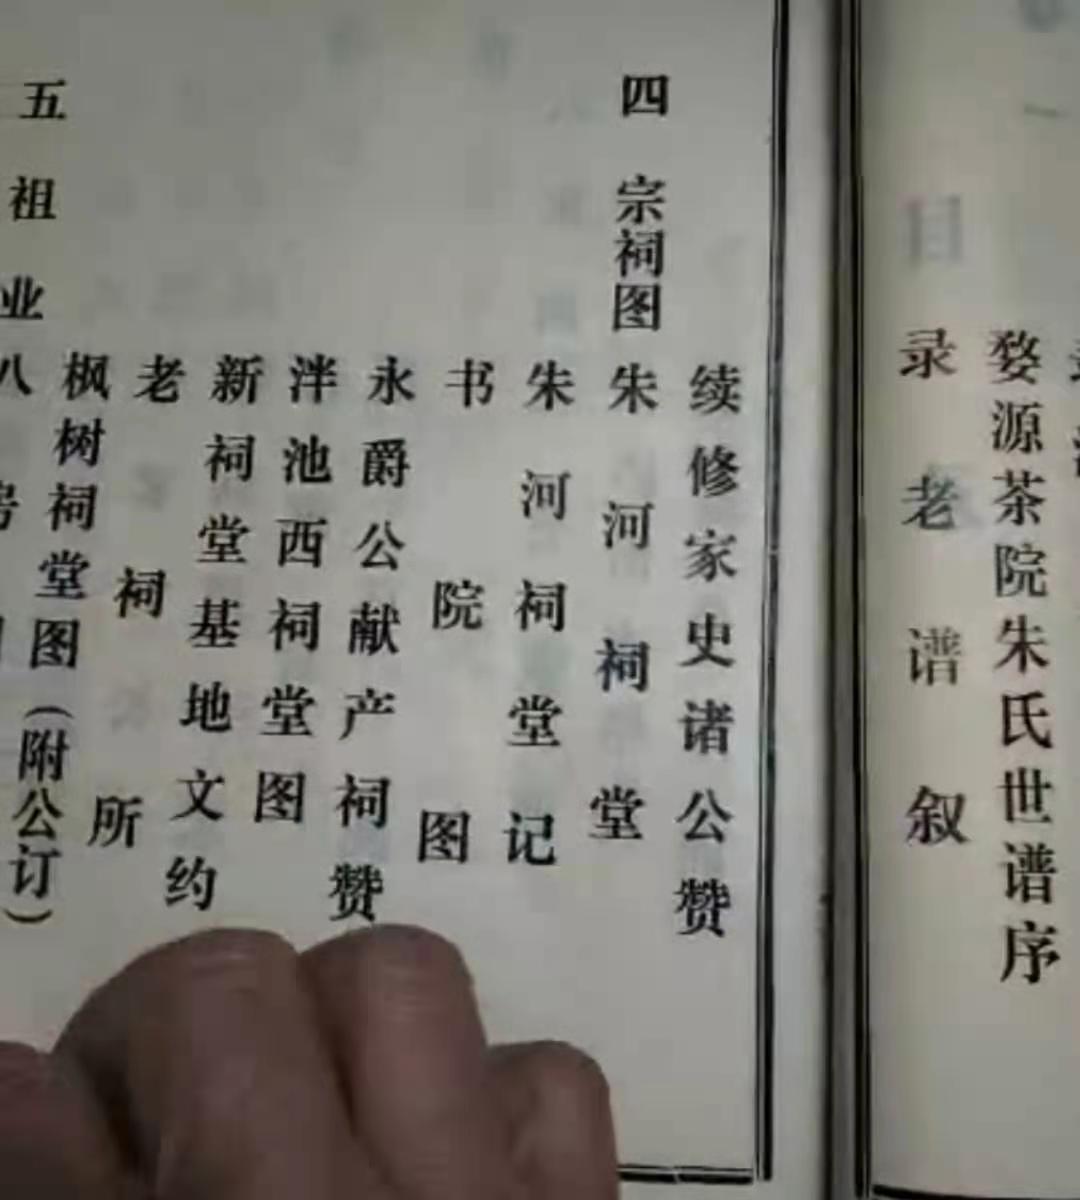 婺源茶院朱氏世谱序
录老谱叙
续修家史诸公赞
四 宗祠图 朱河祠堂
朱河祠堂记
书院图
永爵公献产祠赞
泮池西祠堂图
新祠堂基地文约
老祠所
枫树祠堂图(附公订)
五祖业 八